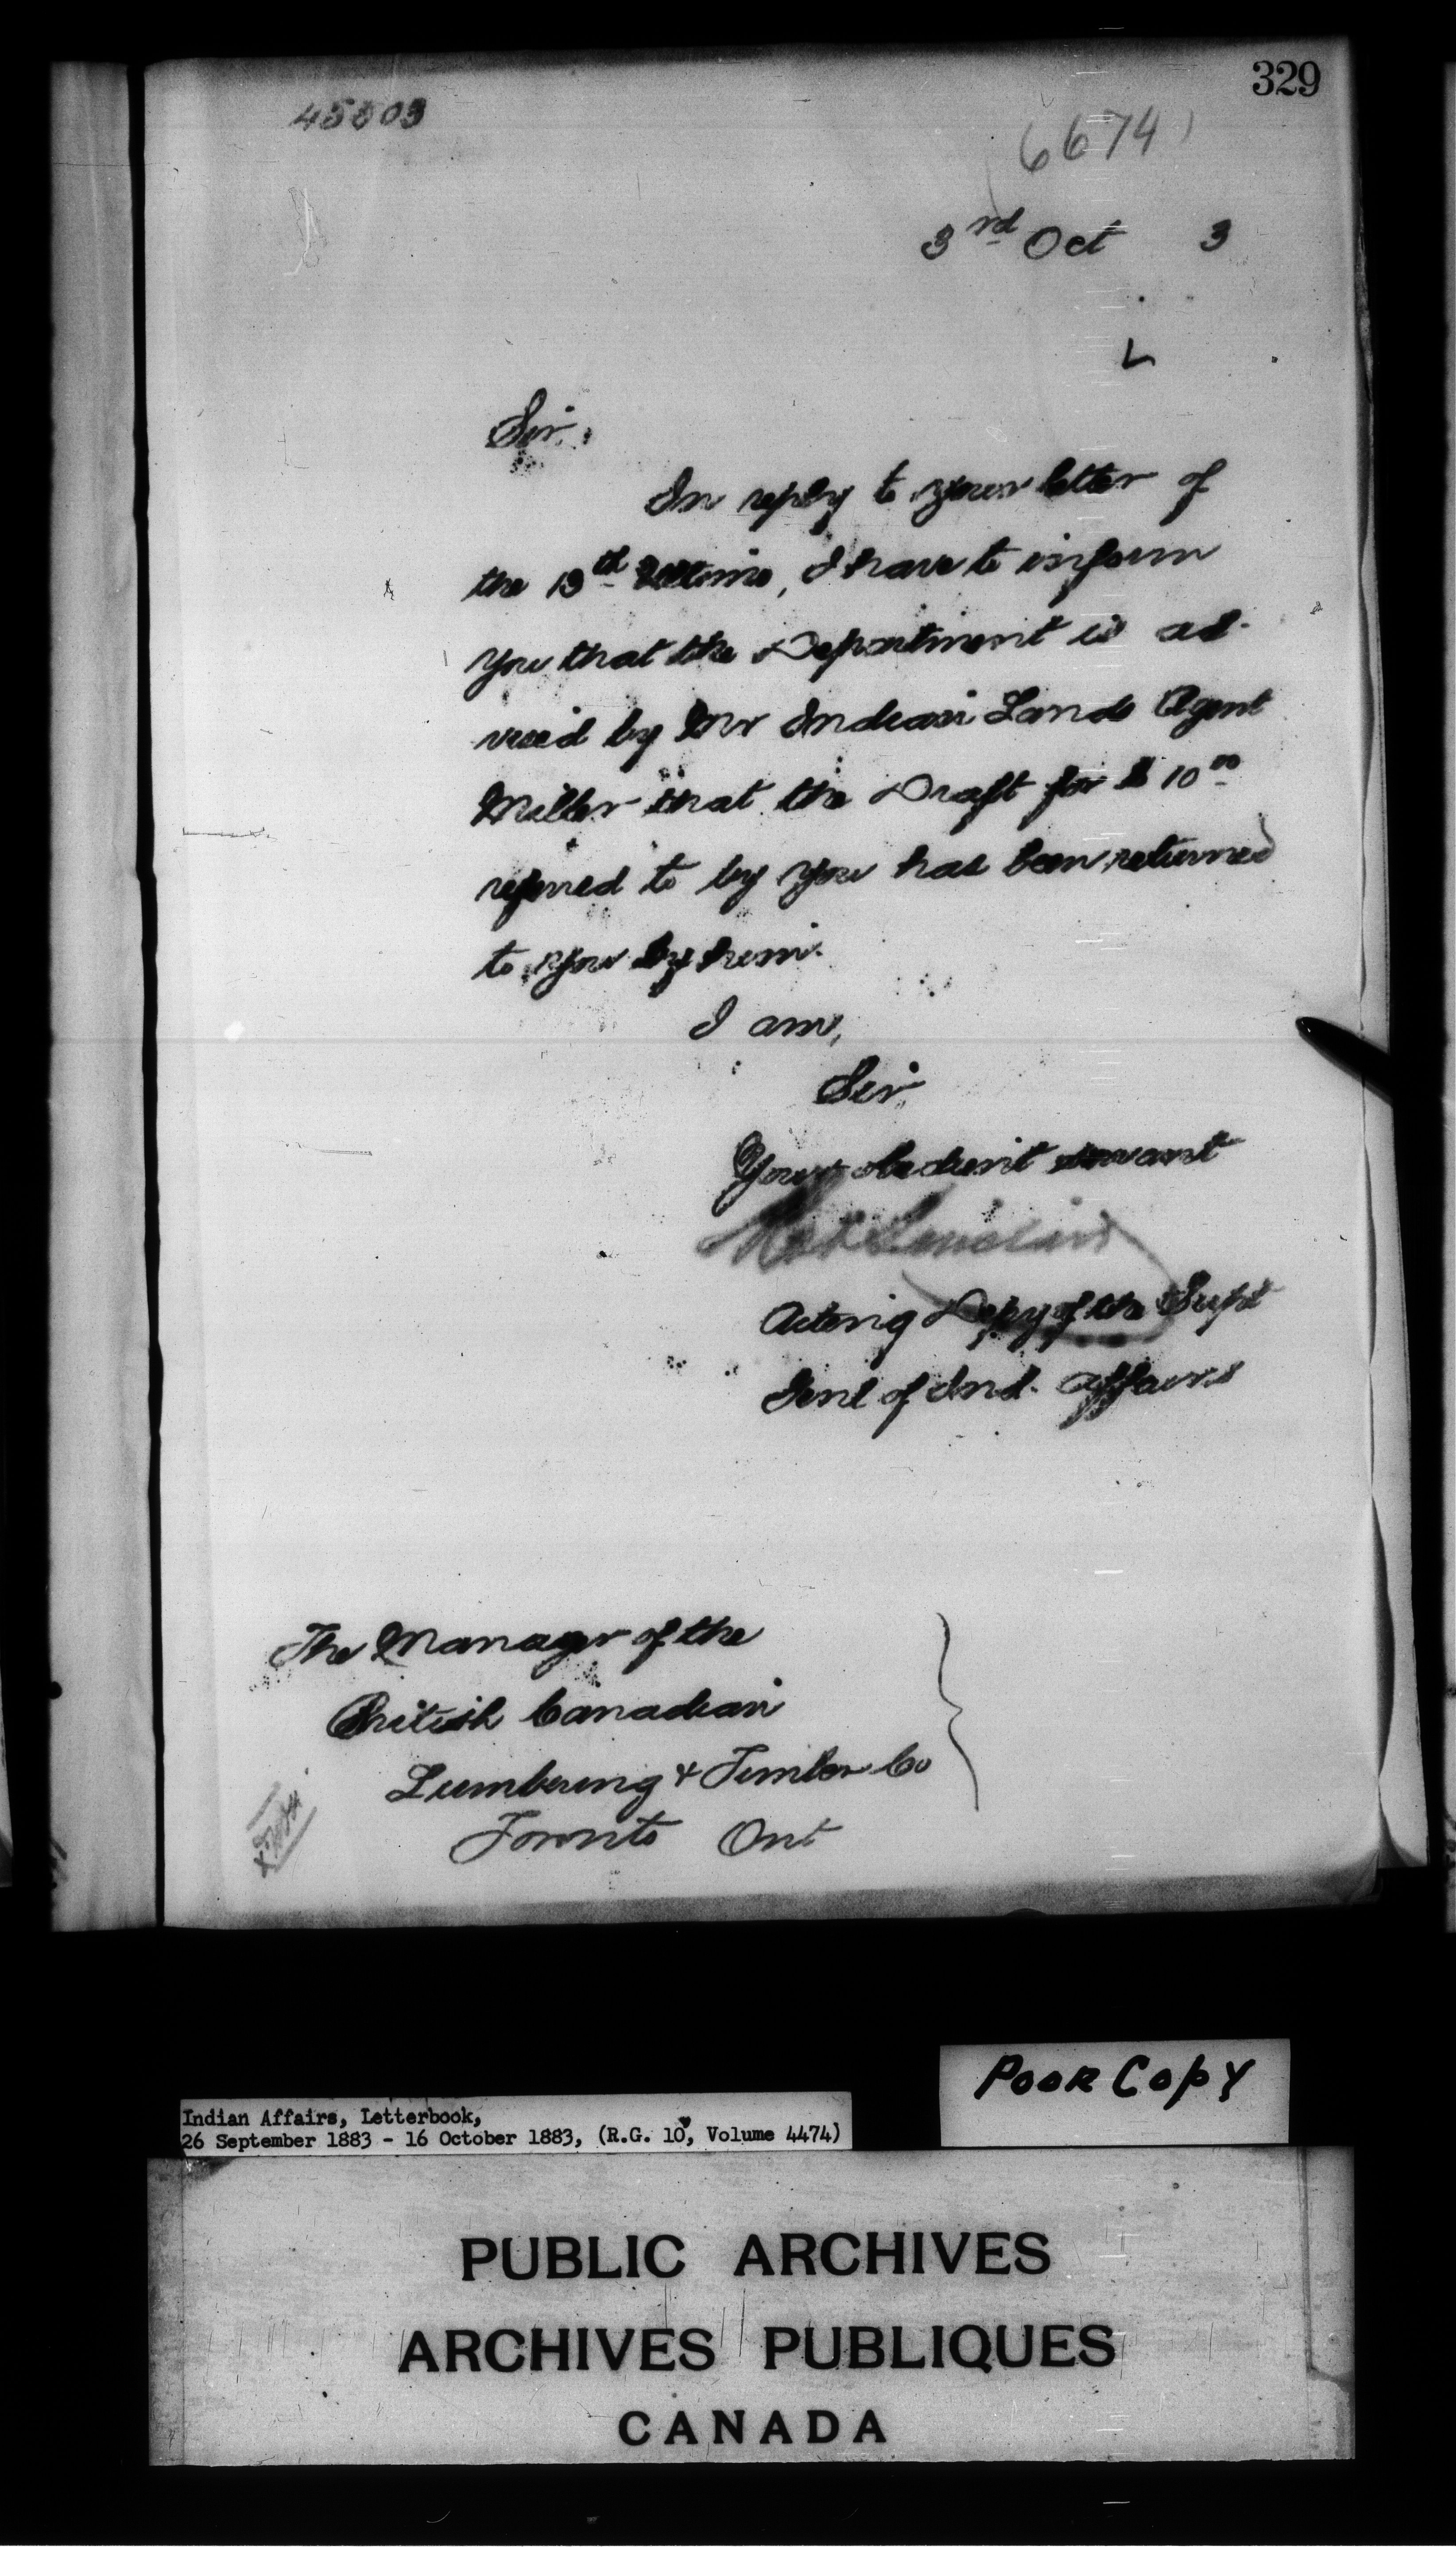 329
45503
6674
3rd Oct 3
Sir,
In reply to your letter of
the 13th Ultimo, I have to inform
you that the Department is ad-
vised by Mr Indian Lands Agent
Miller that the Draft for $10 00
referred to by you has been returned
to you by him.
I am,
Sir
Your obedient servant
Robt Sinclair
Acting Depy of the Supt
Genl of Ind. Affairs
The Manager of the
British Canadian
Lumbering & Timber Co
Toronto Ont
POOR COPY
Indian Affairs, Letterbook,
26 September 1883 - 16 October 1883, (R.G. 10, Volume 4474)
PUBLIC ARCHIVES
ARCHIVES PUBLIQUES
CANADA